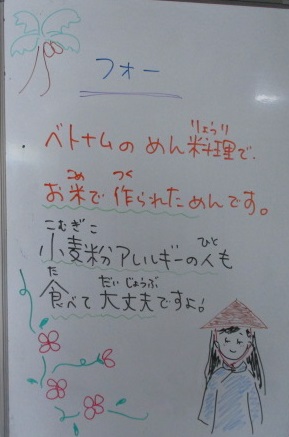 フォー
ベトナムのめん料理で、
りょうり
お米で作られためんです。
こめ つく
小麦粉アレルギーの人も
こむぎこ ひと
食べて大丈夫ですよ!
た だいじょうぶ